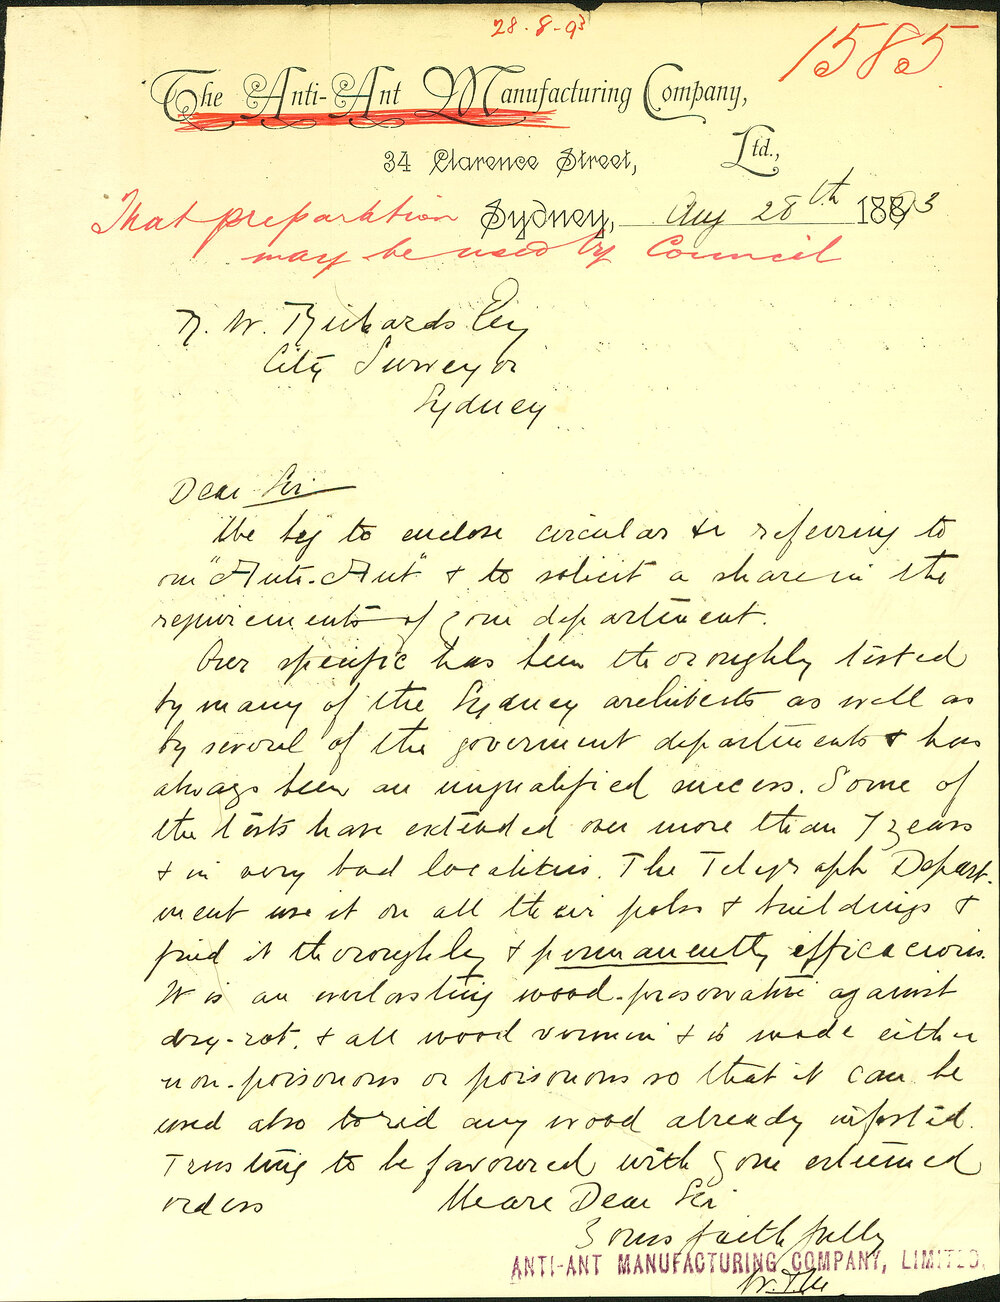 28-8-93
1585
The Anti-Ant Manufacturing Company,
Ltd.,
34 Clarence Street,
Sydney, Aug 28th 1893
That preparation
may be used by Council
R. W. Richards Esq
City Surveyor
Sydney
Dear Sir
We beg to enclose circular &c referring to
our "Anti-Ant" & to solicit a share in the
requirements of your department.
Our specific has been thoroughly tested
by many of the Sydney architects as well as
by several of the government departments & has
always been an unqualified success. Some of
the tests have extended over more than 7 years
& in very bad localities. The Telegraph Depart-
ment use it on all their poles & buildings &
find it thoroughly & permanently efficacious.
It is an everlasting wood-preservative against
dry-rot, & all wood vermin & is made either
non-poisonous or poisonous so that it can be
used also to rid any wood already infested.
Trusting to be favoured with your esteemed
orders We are Dear Sir
Yours faithfully
ANTI-ANT MANUFACTURING COMPANY, LIMITED.